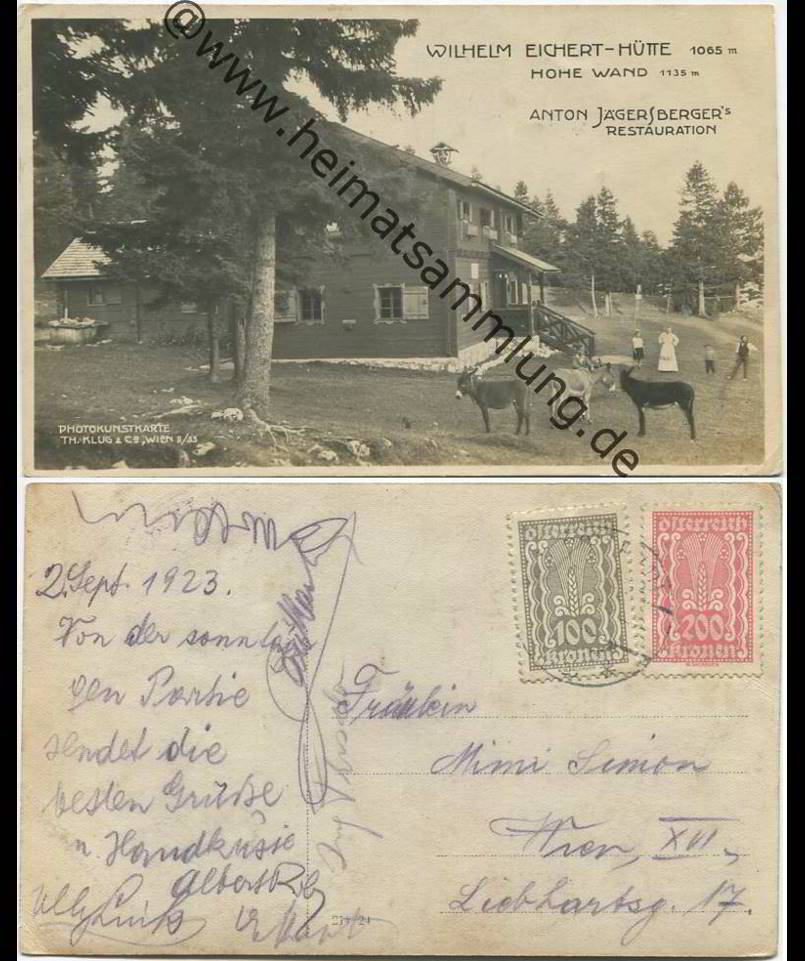 WILHELM EICHERT-HÜTTE 1065 m
HOHE WAND 1135 m
ANTON JÄGERSBERGER's
RESTAURATION
@www.heimatsammlung.de
PHOTOKUNSTKARTE
TH. KLUG & Co, WIEN II/33
2. Sept 1923.
Von der sonntä
gen Partie
sendet die
besten Grüße
u. Handküsse
Albert
Österreich
100
Kronen
Österreich
200
Kronen
Fräulein
Mimi Simon
Wien, XVI.,
Liebhartsg. 17.